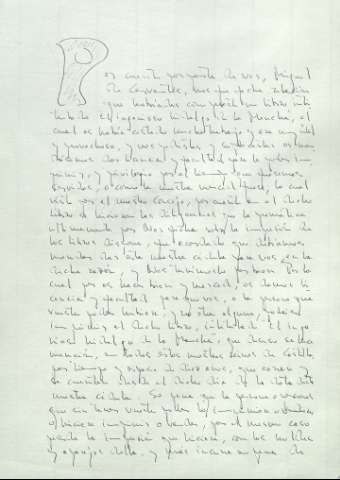 Por cuanto por parte de vos, Miguel
de Cervantes, nos fue fecha relación
que habíades compuesto un libro inti-
tulado El ingenioso hidalgo de la Mancha, el
cual os había costado mucho trabajo y era muy útil
y provechoso, y nos pedistes y suplicastes os man-
dásemos dar licencia y facultad para le poder im-
primir, y previlegio por el tiempo que fuésemos
servidos, o como la nuestra merced fuese, lo cual
visto por el nuestro Consejo, por cuanto en el dicho
libro se hicieron las diligencias que la premática
últimamente por Nos fecha sobre la impresión de
los libros dispone, fue acordado que debíamos
mandar dar esta nuestra cédula para vos, en la
dicha razón, y Nos tuvímoslo por bien. Por la
cual por os hacer bien y merced, os damos li-
cencia y facultad para que vos, o la persona que
vuestro poder hubiere, y no otra alguna, podáis
imprimir el dicho libro, intitulado El inge-
nioso hidalgo de la Mancha, que desuso se hace
mención, en todos estos nuestros reinos de Castilla,
por tiempo y espacio de diez años, que corran y
se cuenten desde el dicho día de la data desta
nuestra cédula. So pena que la persona o personas
que sin tener vuestro poder lo imprimiere o vendiere,
o hiciere imprimir o vender, por el mesmo caso
pierda la impresión que hiciere, con los moldes
y aparejos della, y más incurra en pena de